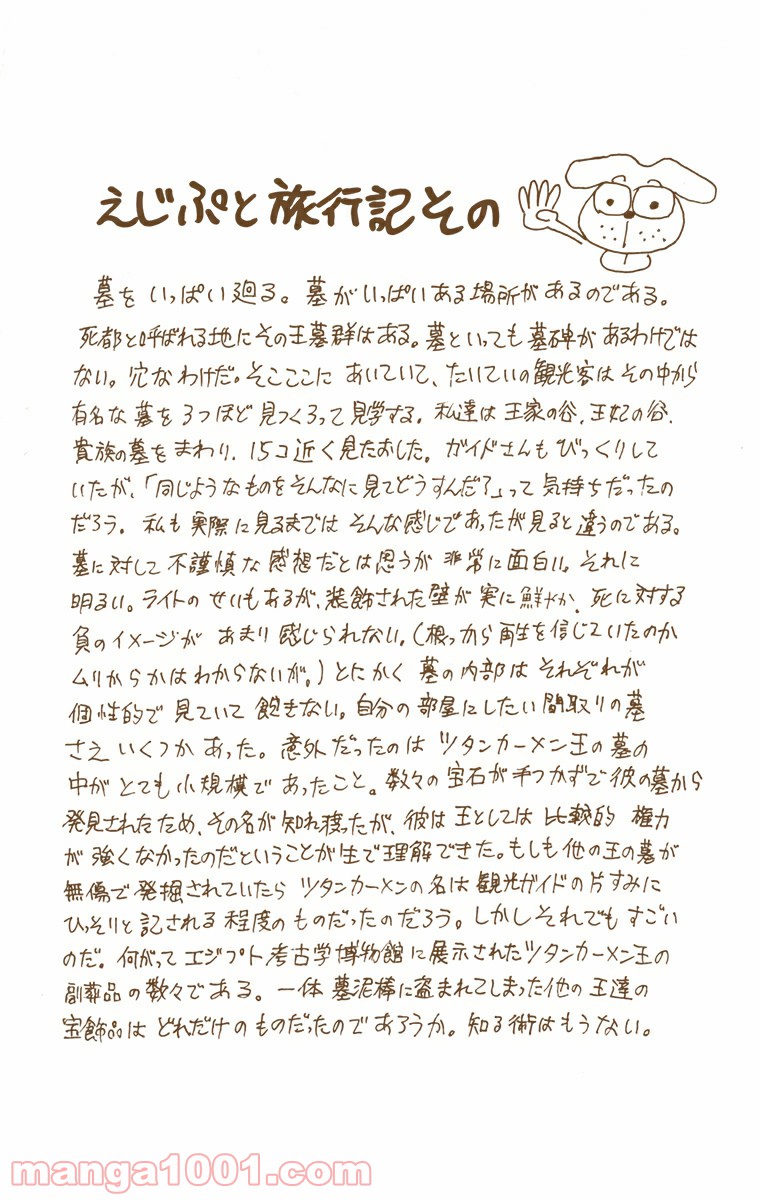 えじぷと旅行記その
墓をいっぱい廻る。墓がいっぱいある場所があるのである。
死都と呼ばれる地にその王墓群はある。墓といっても墓碑があるわけでは
ない。穴なわけだ。そこここにあいていて、たいていの観光客はその中から
有名な墓を3つほど見つくろって見学する。私達は王家の谷、王妃の谷、
貴族の墓をまわり、15コ近く見たおした。ガイドさんもびっくりして
いたが、「同じようなものをそんなに見てどうすんだ?」って気持ちだったの
だろう。私も実際に見るまではそんな感じであったが見ると違うのである。
墓に対して不謹慎な感想だとは思うが非常に面白い。それに
明るい。ライトのせいもあるが、装飾された壁が実に鮮やか、死に対する
負のイメージがあまり感じられない。(根っから再生を信じていたのか
ムリからかはわからないが。)とにかく墓の内部はそれぞれが
個性的で見ていて飽きない。自分の部屋にしたい間取りの墓
さえいくつかあった。意外だったのはツタンカーメン王の墓の
中がとても小規模であったこと。数々の宝石が手つかずで彼の墓から
発見されたため、その名が知れ渡ったが、彼は王としては比較的権力
が強くなかったのだということが生で理解できた。もしも他の王の墓が
無傷で発掘されていたらツタンカーメンの名は観光ガイドの片すみに
ひっそりと記される程度のものだったのだろう。しかしそれでもすごい
のだ。何がってエジプト考古学博物館に展示されたツタンカーメン王の
副葬品の数々である。一体墓泥棒に盗まれてしまった他の王達の
宝飾品はどれだけのものだったのであろうか。知る術はもうない。
manga1001.com